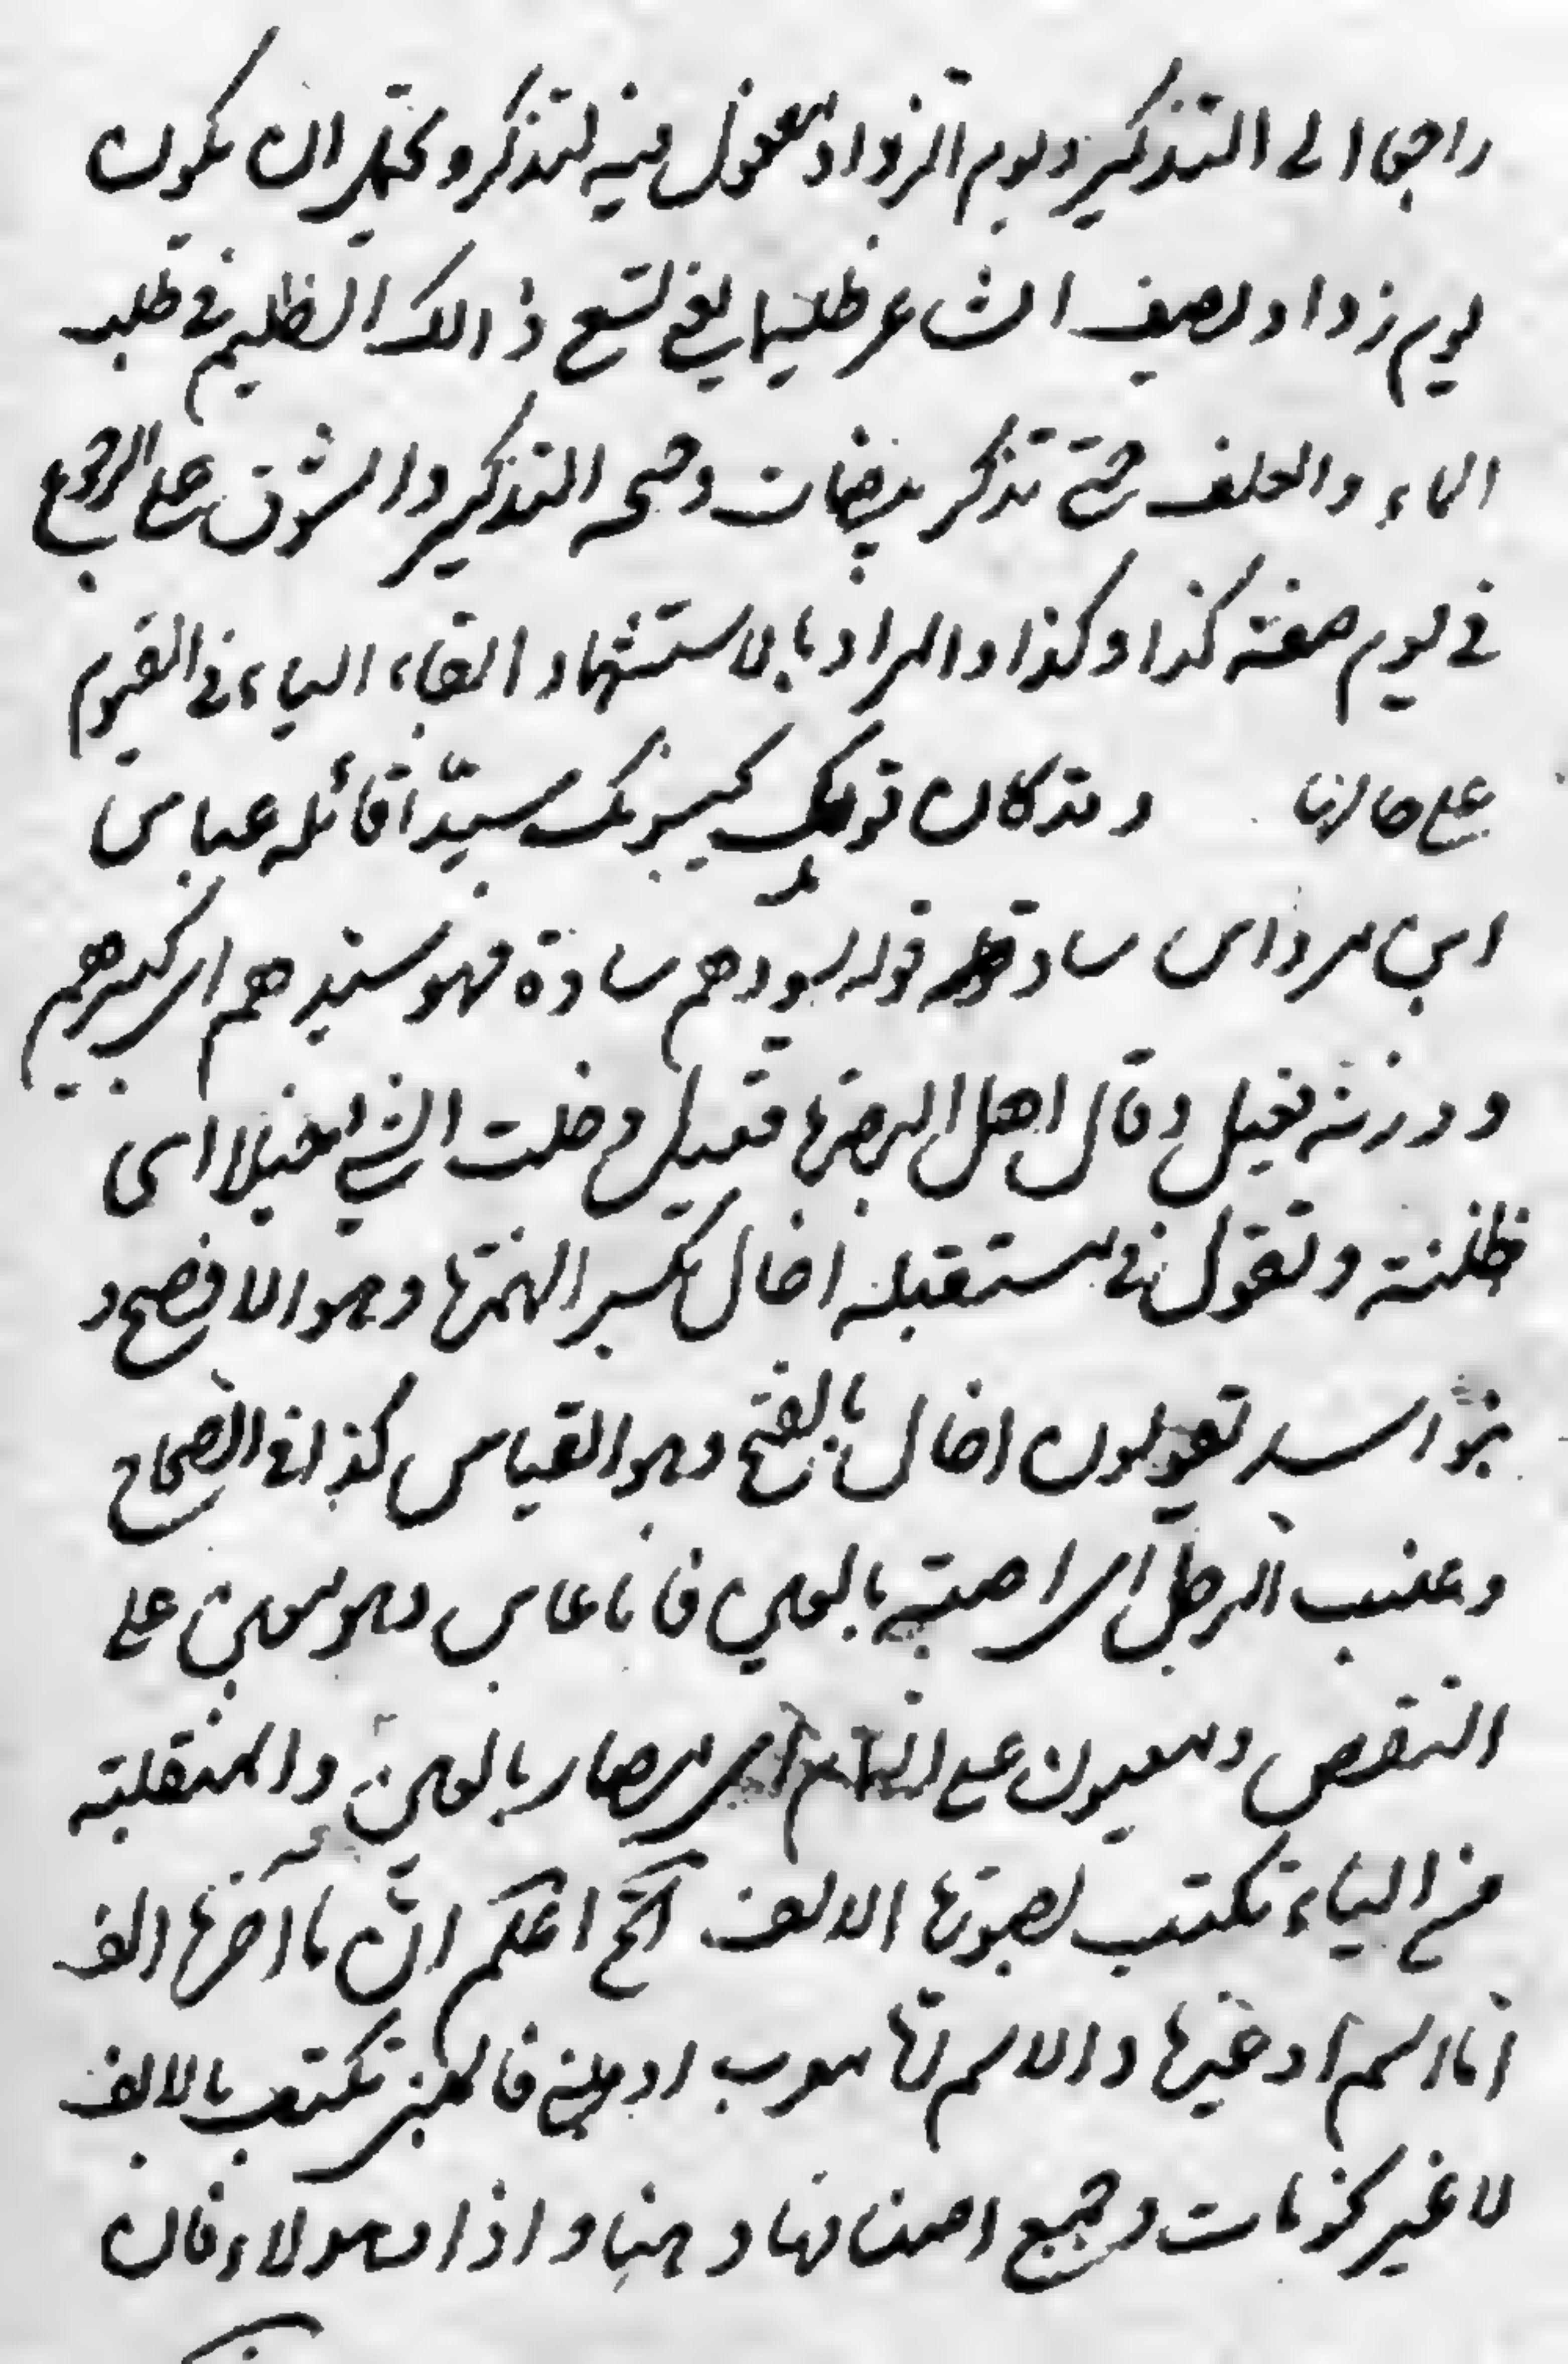 راجعا الى التذكير ويوم الرذاذ مفعول فيه لتذكر ويحتمل ان يكون
يوم رذاذ يصف الشاعر ظليما يعني لسع ذالك الظليم في طلب
الماء والعلف حتى تذكر بيضات وهيجه التذكير والشوق على الرجوع
في يوم صفته كذا وكذا والمراد بالاستشهاد ابقاء الياء في الغيوم
على حالها وقد كان قومك يحسبونك سيدا قائله عباس
ابن مرداس ساد قومه يسودهم سادة فهو سيدهم اى كبيرهم
و وزنه فعيل وقال اهل البصرة فيعل وخلت الشئ خيلا اى
ظننته وتقول في مستقبله اخال بكسر الهمزة وهو الافصح و
بنو اسد تقولون اخال بالفتح وهو القياس كذا في الصحاح
وعنت الرجل اى اصبته بالعين فانا عاين وهو معين على
النقص ومعيون على التمام اى صار بالعين والمنقلبة
من الياء تكتب بصورتها الالف الخ اعلم ان ما اخرها الف
اما اسم او غيرها والاسم اما معرب او مبني فالمبني تكتب بالالف
لا غير نحو ما وجميع اصنافها وهنا واذا وهولاء فان